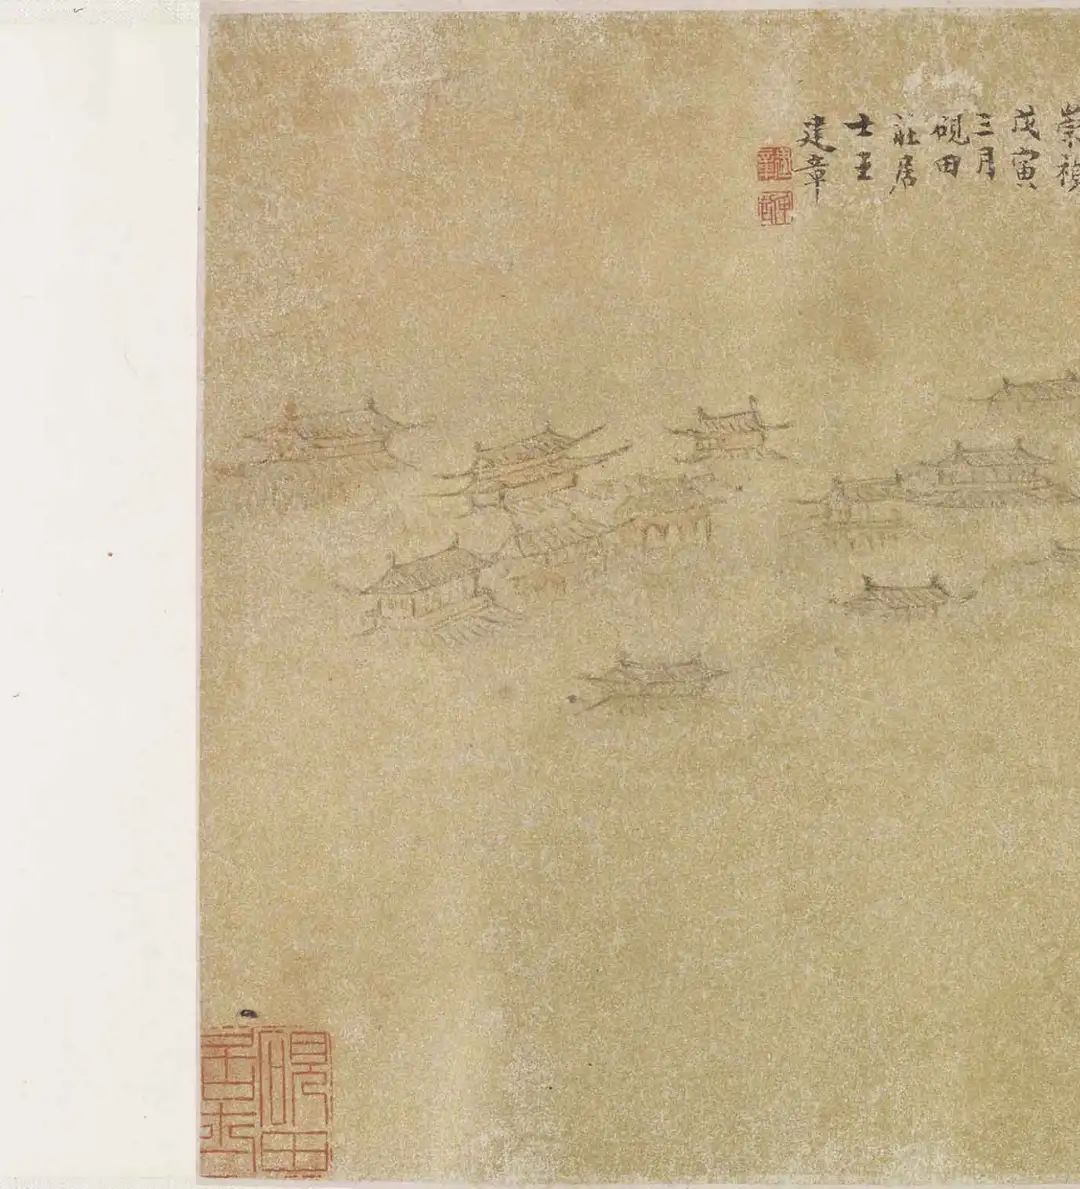 崇禎
戊寅
三月
硯田
莊居
士王
建章
硯田